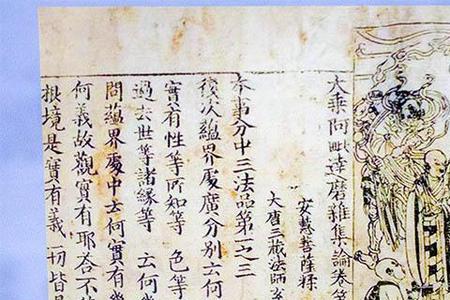 大乘阿毗達磨雜集論卷第
安慧菩薩糅
大唐三藏法師玄
本事分中三法品第一之三
復次蘊界處廣分別云何
實有性等所知等 色等
過去世等諸緣等 云何
問蘊界處中云何實有幾
何義故觀實有耶答不
根境是實有義一切皆是